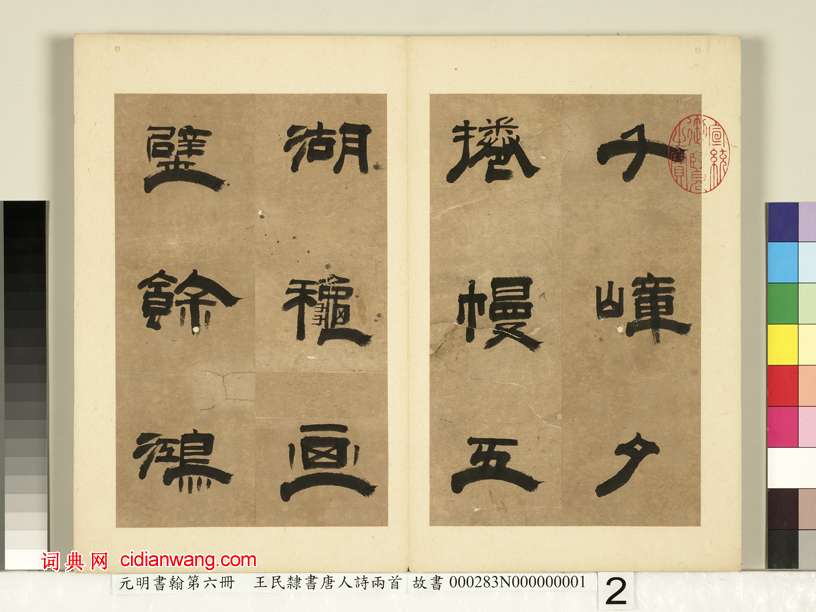 千嶂夕
捲幔五
湖穐画
壁餘鴻
宣統御覽之寶
词典网 cidianwang.com
元明書翰第六冊 王民隸書唐人詩兩首 故書 000283N000000001
2